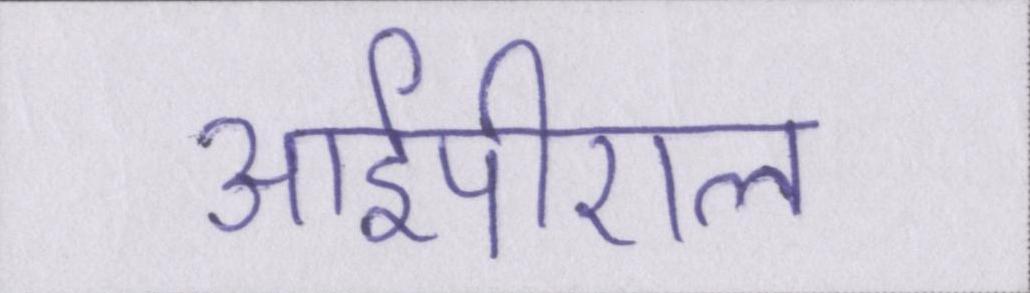 आईपीएल